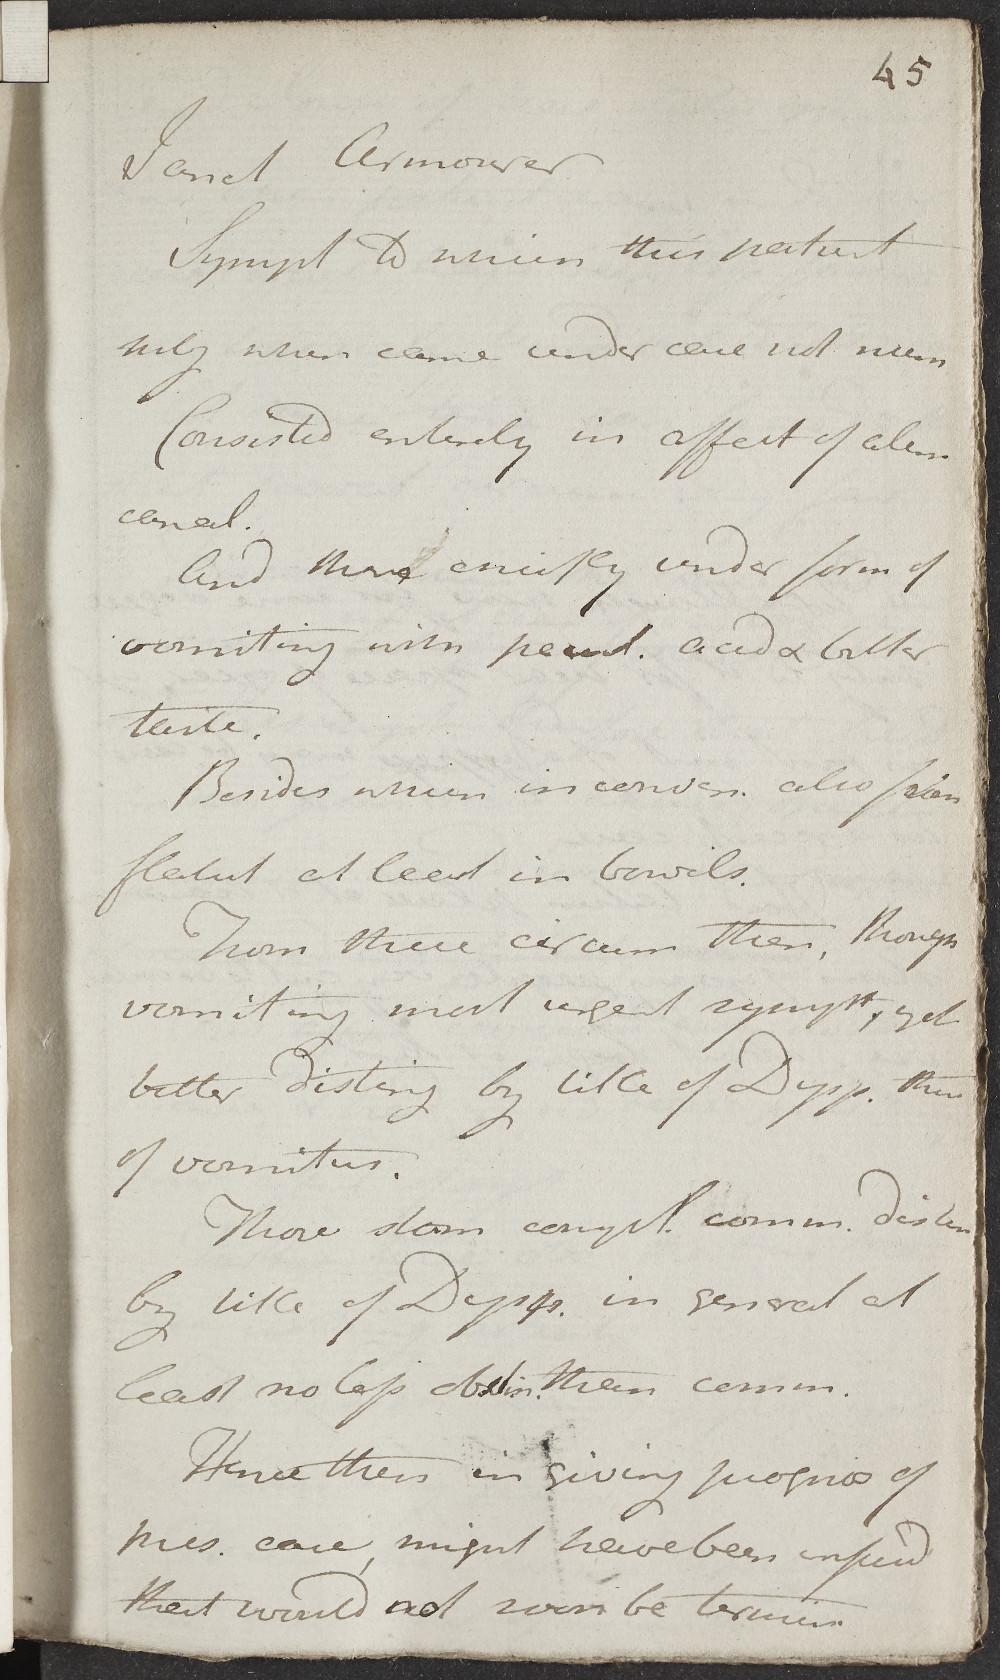 45
Janet Armourer
Sympt to which this patient
subj when came under care not num
Consisted entirely in affect of alim
canal.
And there chiefly under form of
vomiting with pecul. acid & bitter
taste.
Besides which inconven. also from
flatul at least in bowils.
From these circum then, though
vomiting most urgent sympt, yet
better disting by title of Dysp. than
of vomitus.
Those stom compl. comm. distin
by title of Dysp. in general at
least no less obstin. than comm.
Hence then in giving prognos of
pres. case, might have been infer'd
that would not soon be termin.